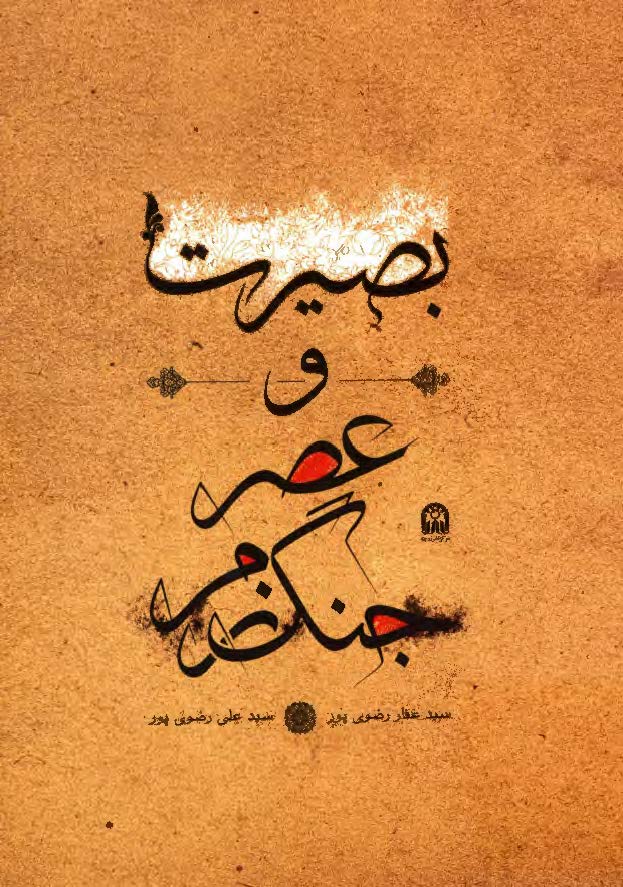 بصیرت
و
عصر
جنگ نرم
سید غفار رضوی پور سید علی رضوی پور